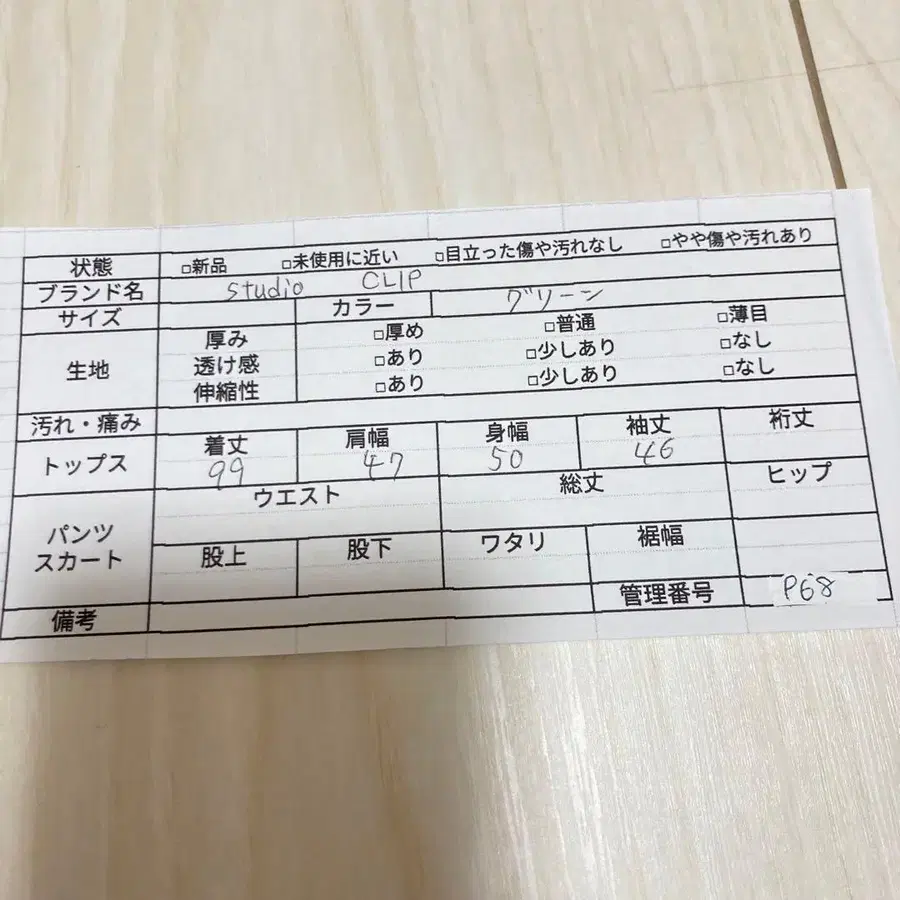 状態 □新品 □未使用に近い □目立った傷や汚れなし □やや傷や汚れあり
ブランド名 studio CLIP
サイズ カラー グリーン
生地 厚み □厚め □普通 □薄目
透け感 □あり □少しあり □なし
伸縮性 □あり □少しあり □なし
汚れ・痛み
トップス 着丈 肩幅 身幅 袖丈 裄丈
99 47 50 46
パンツ スカート ウエスト 総丈 ヒップ
股上 股下 ワタリ 裾幅
備考 管理番号 P68